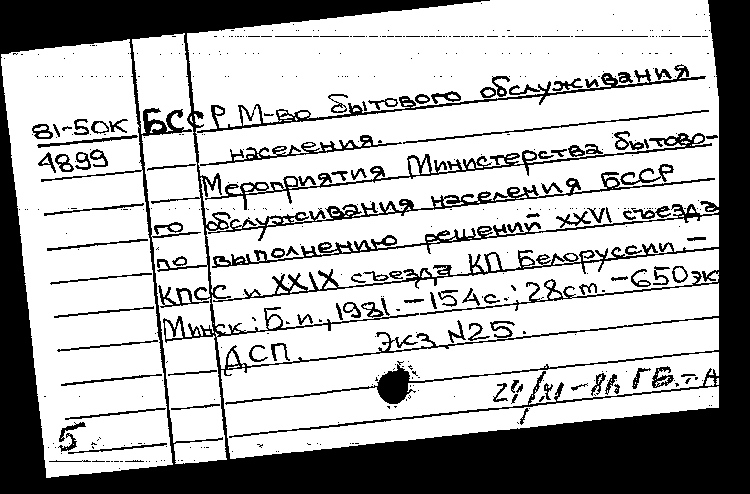 81-50К БССР. М-во бытового обслуживания
4899 населения.
Мероприятия Министерства бытово-
го обслуживания населения БССР
по выполнению решений XXVI съезда
КПСС и XXIX съезда КП Белоруссии.-
Минск: Б.и., 1981.-154с.; 28см.-650эк
ДСП. Экз. N25.
5